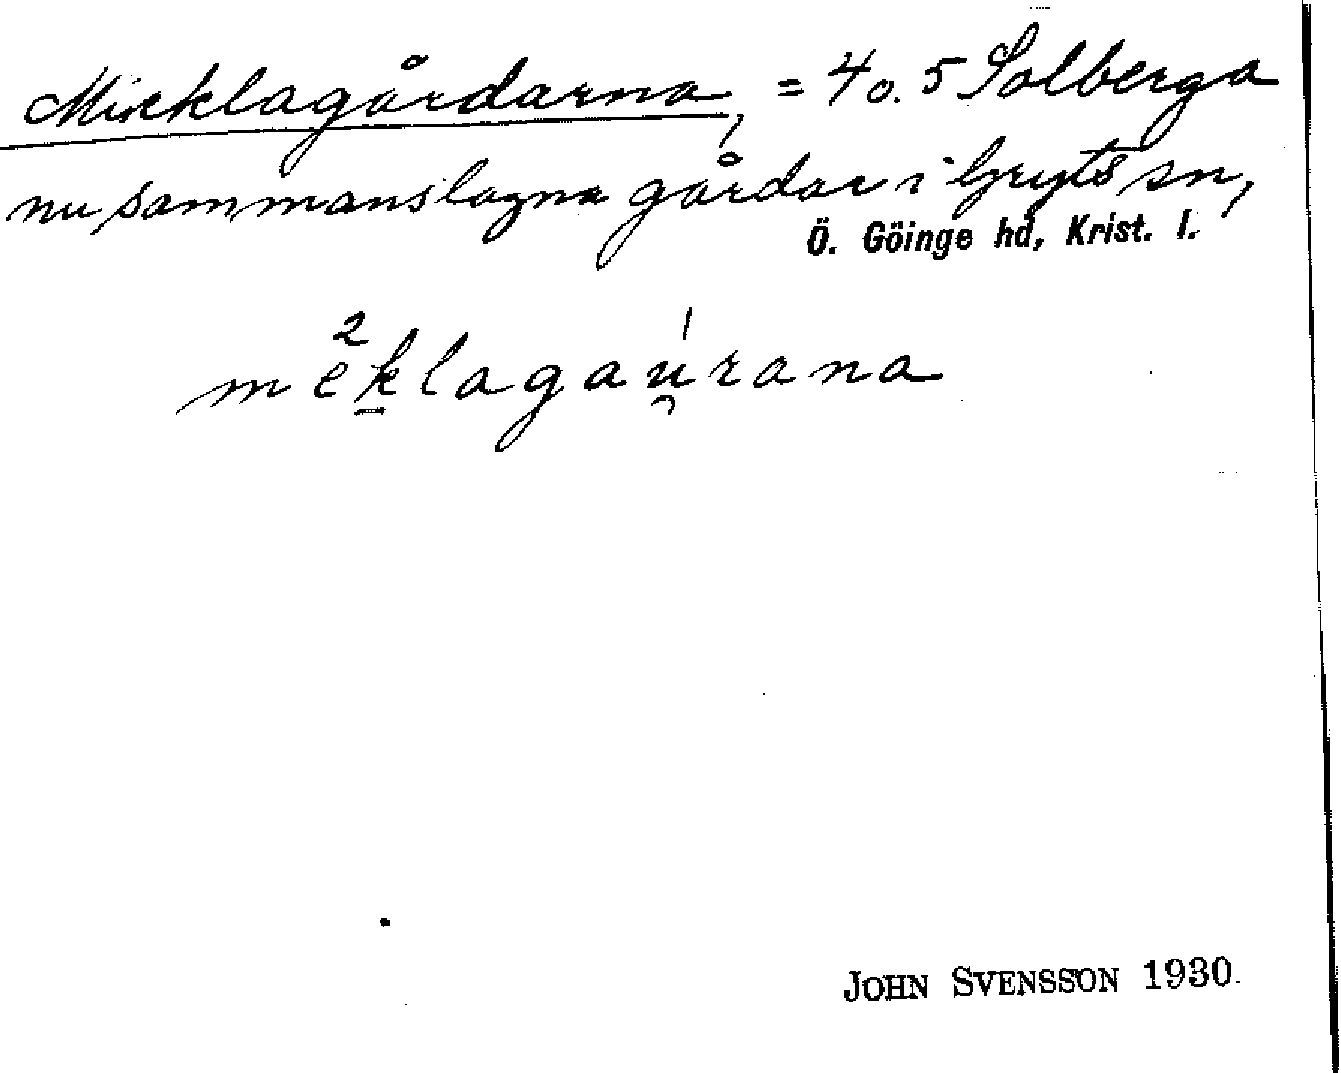 Micklagårdarna, = 4 o. 5 Solberga
nu sammanslagna gårdar i Gryts sn,
Ö. Göinge hd, Krist. l.
mèk̲lagaú̯rana
JOHN SVENSSON 1930.